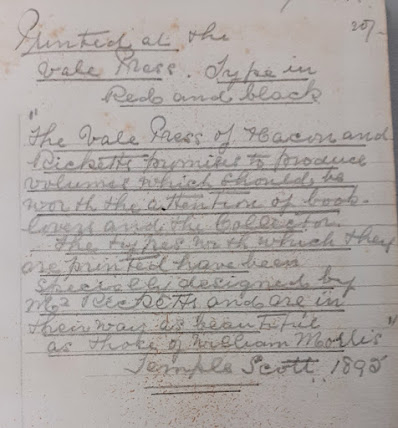 Printed at the 30/-
Vale Press. Type in
Red and black
"The Vale Press of Hacon and
Ricketts promises to produce
volumes which should be
worth the attention of book-
lovers and the Collector.
The types with which they
are printed have been
specially designed by
Mr Ricketts and are in
their way as beautiful
as those of William Morris"
Temple Scott. 1895